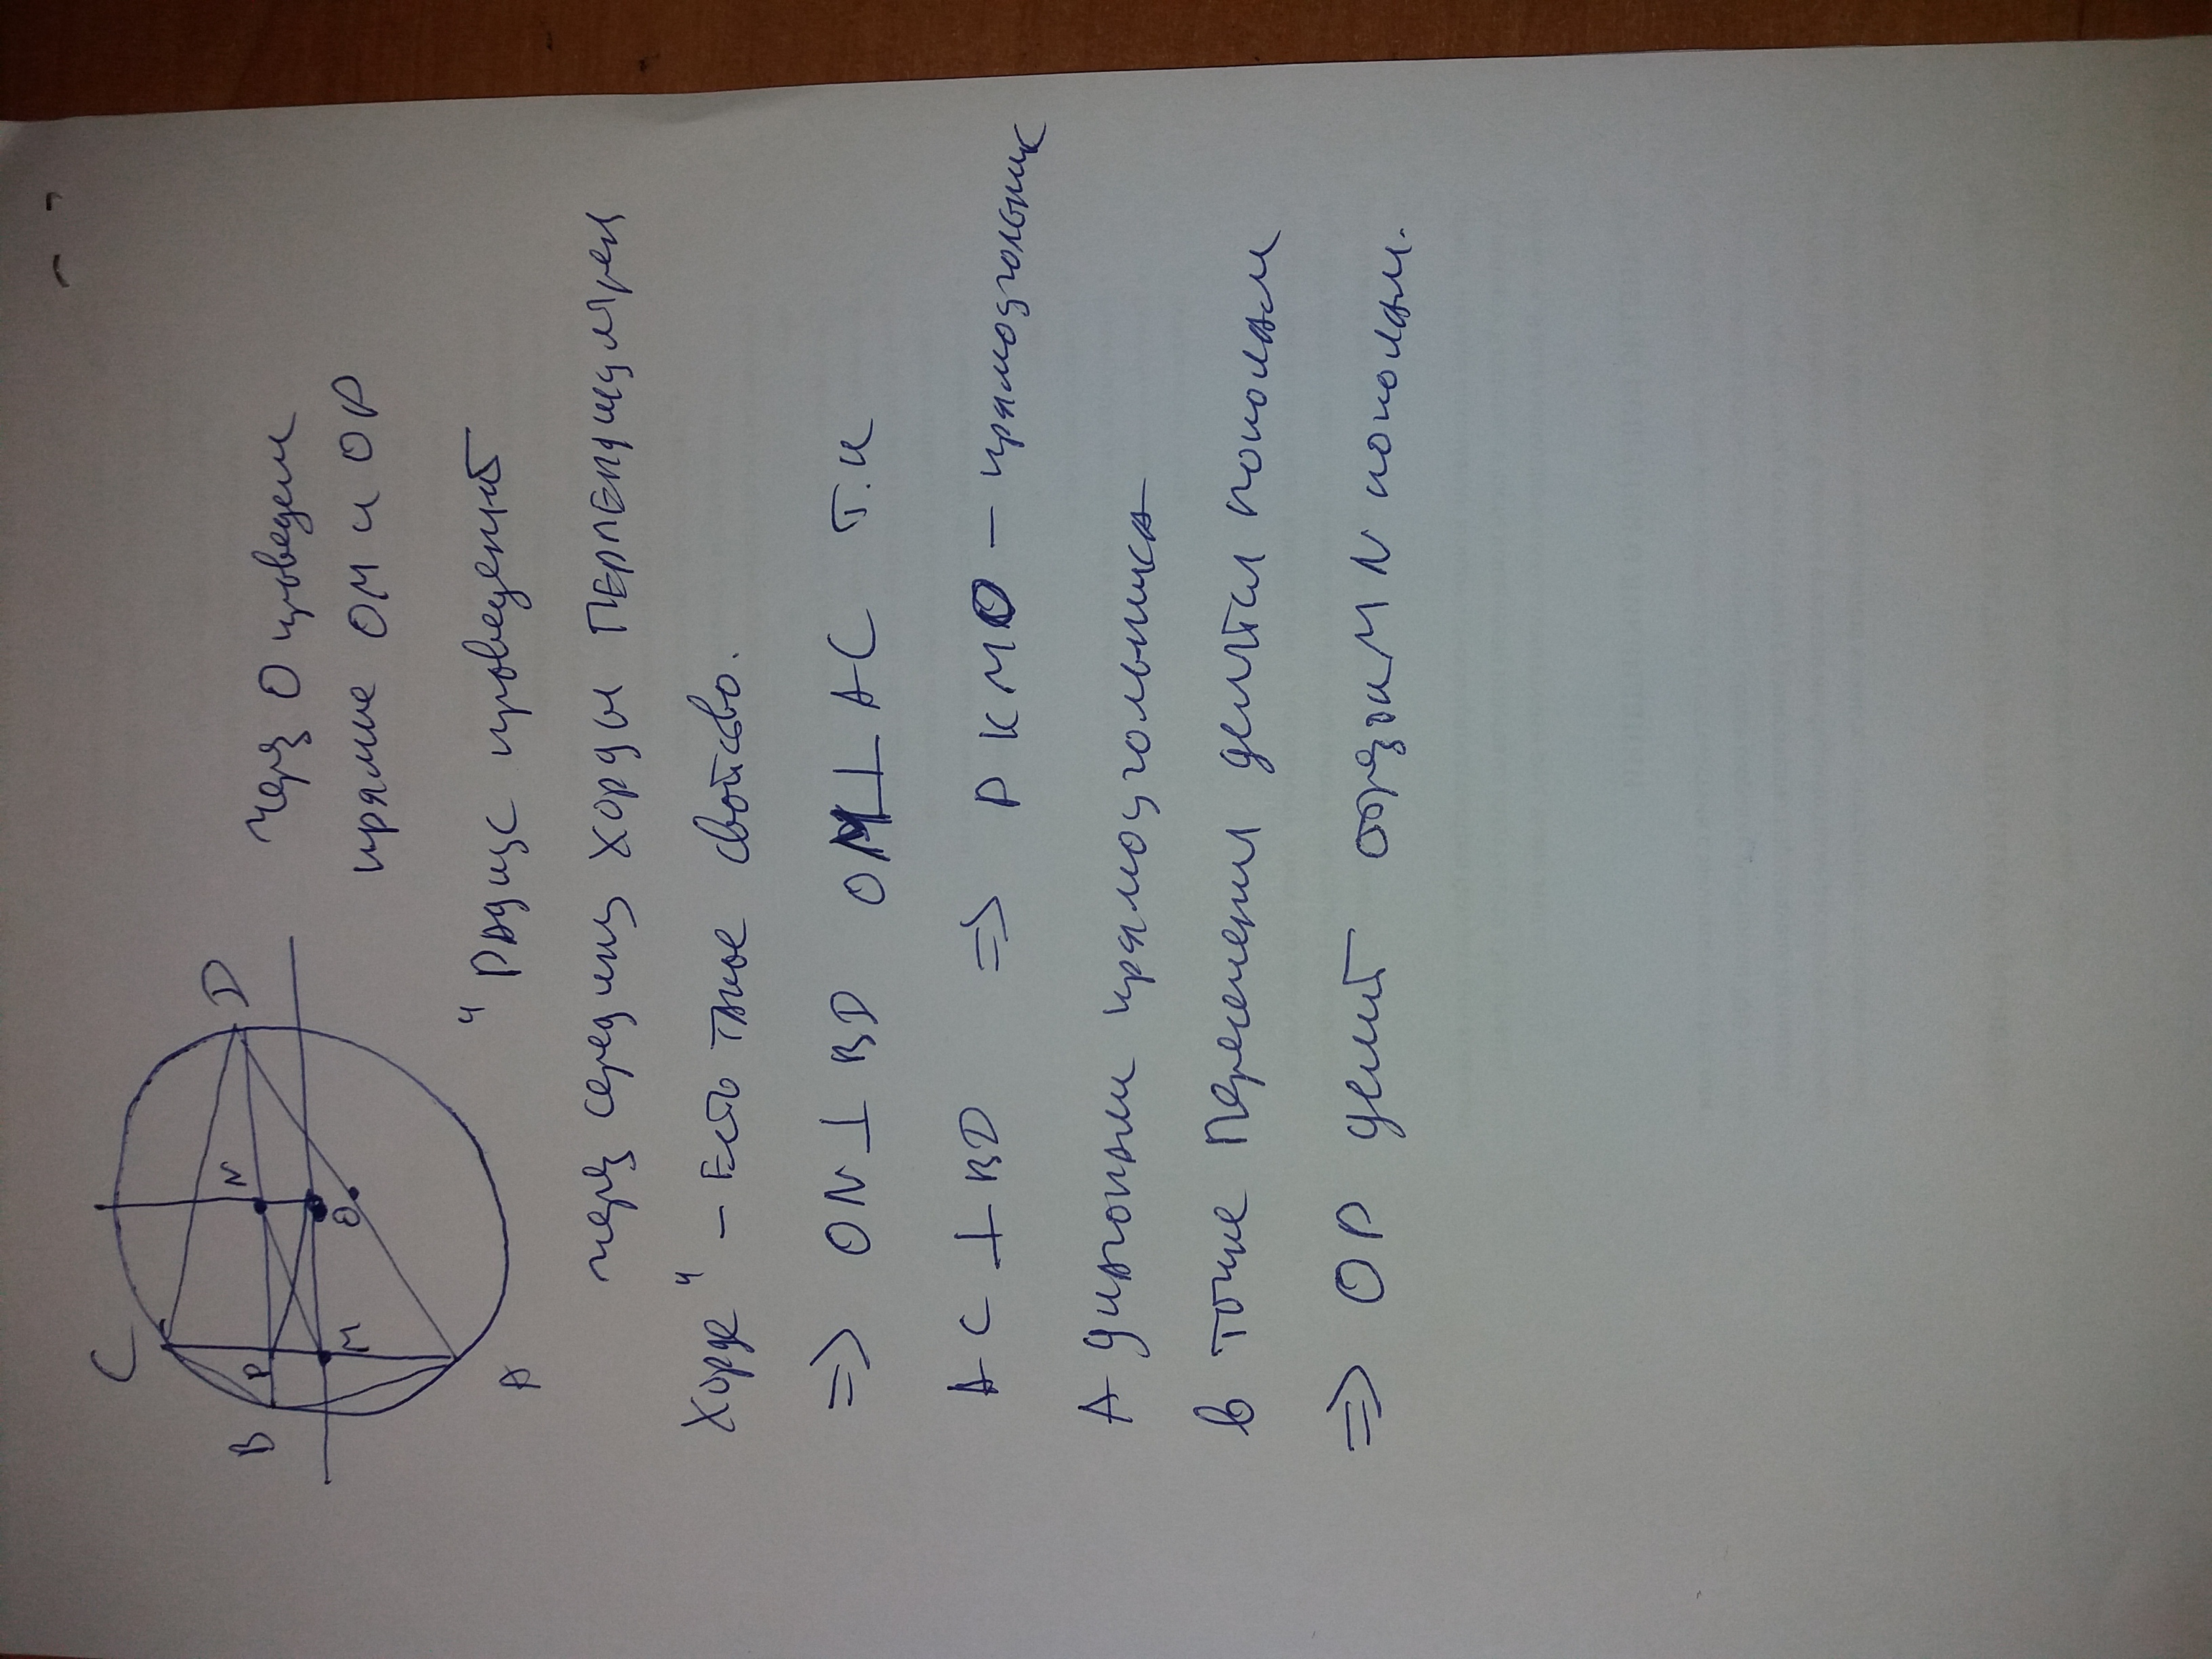 C
B
P
N
D
M
O
A
через O проведем
прямые OM и OP
"Радиус проведеный
через середину хорды перпендикулярен
хорде" – Есть такое свойство.
=> ON ⊥ BD OM ⊥ AC т.к
AC ⊥ BD => PKMO – прямоугольник
А диагонали прямоугольника
в точке пересечения делятся пополам
=> OP делит отрезок MN пополам.